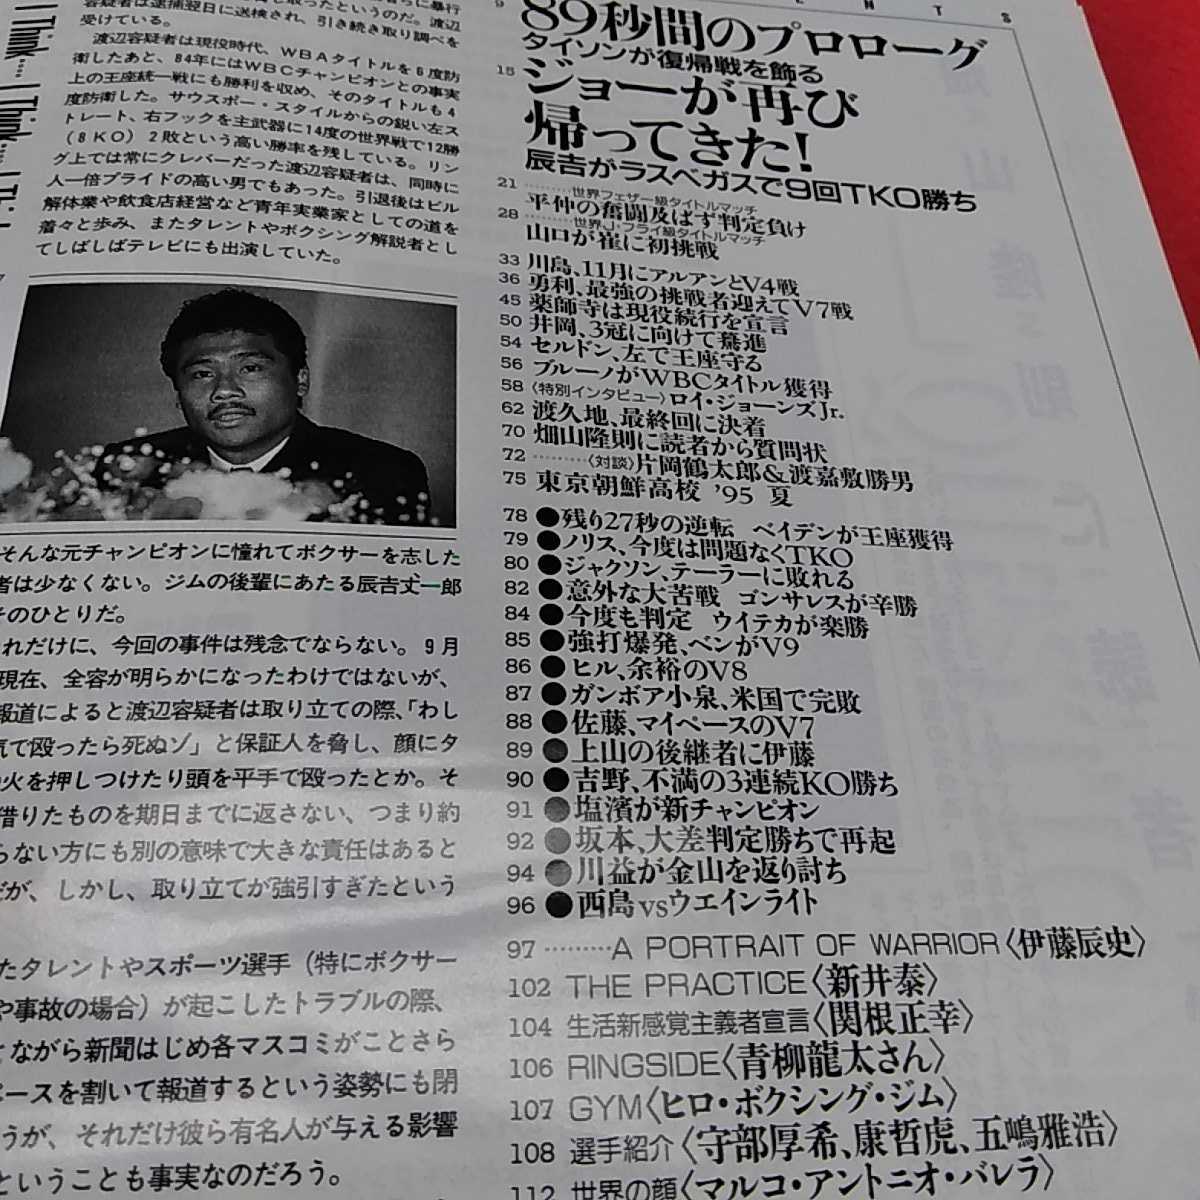 I Think.... I Think.... I Think....
容疑者は逮捕翌日に送検され、引き続き取り調べを
受けている。
渡辺容疑者は現役時代、WBAタイトルを6度防
衛したあと、84年にはWBCチャンピオンとの事実
上の王座統一戦にも勝利を収め、そのタイトルも4
度防衛した。サウスポー・スタイルからの鋭い左ス
トレート、右フックを主武器に14度の世界戦で12勝
(8KO)2敗という高い勝率を残している。リン
グ上では常にクレバーだった渡辺容疑者は、同時に
人一倍プライドの高い男でもあった。引退後はビル
解体業や飲食店経営など青年実業家としての道を
着々と歩み、またタレントやボクシング解説者とし
てしばしばテレビにも出演していた。
そんな元チャンピオンに憧れてボクサーを志した
者は少なくない。ジムの後輩にあたる辰吉丈一郎
そのひとりだ。
れだけに、今回の事件は残念でならない。9月
現在、全容が明らかになったわけではないが、
報道によると渡辺容疑者は取り立ての際、「わし
気で殴ったら死ぬゾ」と保証人を脅し、顔にタ
の火を押しつけたり頭を平手で殴ったとか。そ
借りたものを期日までに返さない、つまり約
らない方にも別の意味で大きな責任はあると
だが、しかし、取り立てが強引すぎたという
たタレントやスポーツ選手(特にボクサー
や事故の場合)が起こしたトラブルの際、
てながら新聞はじめ各マスコミがことさら
ペースを割いて報道するという姿勢にも閉
うが、それだけ彼ら有名人が与える影響
ということも事実なのだろう。
E N T S
9 89秒間のプロローグ
タイソンが復帰戦を飾る
15 ジョーが再び
帰ってきた!
辰吉がラスベガスで9回TKO勝ち
21 ………世界フェザー級タイトルマッチ
平仲の奮闘及ばず判定負け
28 ………世界J・フライ級タイトルマッチ
山口が崔に初挑戦
33 川島、11月にアルアンとV4戦
36 勇利、最強の挑戦者迎えてV7戦
45 薬師寺は現役続行を宣言
50 井岡、3冠に向けて驀進
54 セルドン、左で王座守る
56 ブルーノがWBCタイトル獲得
58 〈特別インタビュー〉ロイ・ジョーンズJr.
62 渡久地、最終回に決着
70 畑山隆則に読者から質問状
72 ………〈対談〉片岡鶴太郎&渡嘉敷勝男
75 東京朝鮮高校 '95 夏
78 ●残り27秒の逆転 ベイデンが王座獲得
79 ●ノリス、今度は問題なくTKO
80 ●ジャクソン、テーラーに敗れる
82 ●意外な大苦戦 ゴンサレスが辛勝
84 ●今度も判定 ウイテカが楽勝
85 ●強打爆発、ベンがV9
86 ●ヒル、余裕のV8
87 ●ガンボア小泉、米国で完敗
88 ●佐藤、マイペースのV7
89 ●上山の後継者に伊藤
90 ●吉野、不満の3連続KO勝ち
91 ●塩濱が新チャンピオン
92 ●坂本、大差判定勝ちで再起
94 ●川益が金山を返り討ち
96 ●西島vsウエインライト
97 ………A PORTRAIT OF WARRIOR〈伊藤辰史〉
102 THE PRACTICE〈新井泰〉
104 生活新感覚主義者宣言〈関根正幸〉
106 RINGSIDE〈青柳龍太さん〉
107 GYM〈ヒロ・ボクシング・ジム〉
108 選手紹介〈守部厚希、康哲虎、五嶋雅浩〉
112 世界の顔〈マルコ・アントニオ・バレラ〉